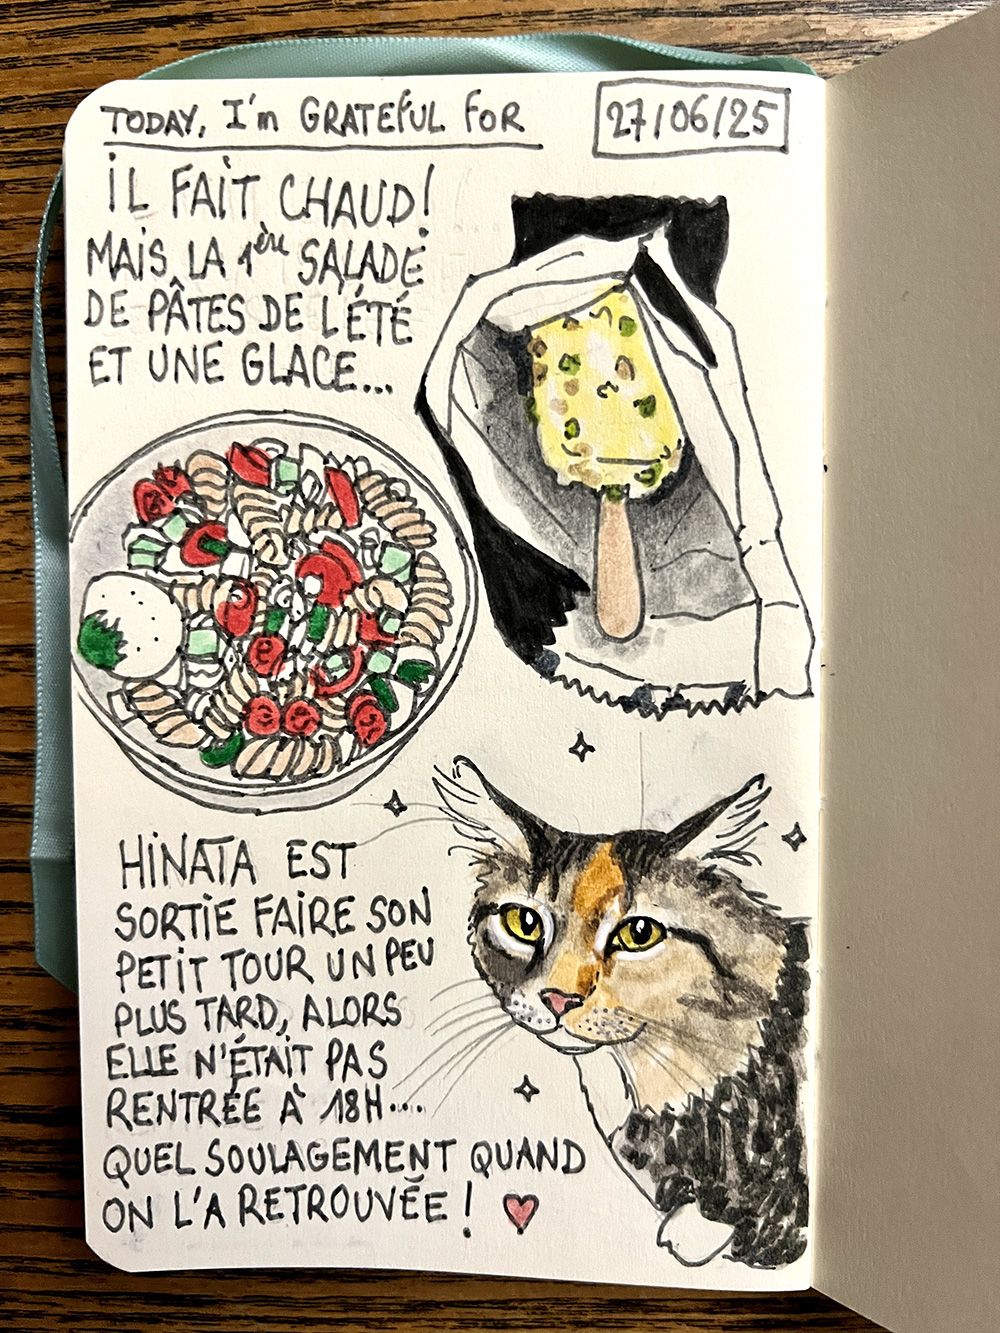 TODAY, I'm GRATEFUL FOR
27/06/25
IL FAIT CHAUD!
MAIS LA 1ère SALADE
DE PÂTES DE L'ÉTÉ
ET UNE GLACE...
HINATA EST
SORTIE FAIRE SON
PETIT TOUR UN PEU
PLUS TARD, ALORS
ELLE N'ÉTAIT PAS
RENTRÉE À 18H....
QUEL SOULAGEMENT QUAND
ON L'A RETROUVÉE!